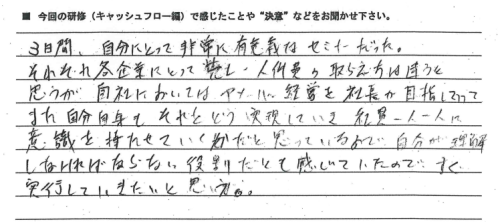 ■ 今回の研修（キャッシュフロー編）で感じたことや“決意”などをお聞かせ下さい。
3日間、自分にとって非常に有意義なセミナーだった。
それぞれ各企業にとって 人件費の取らえ方は違うと
思うが 自社においては 経営を社長が目指していって
また自分自身も それをどう実現していき 社員一人一人に
意識を持たせていくかだと思っているので、自分が理解
しなければならない役割だとも感じていたので、すぐ
実行していきたいと思います。